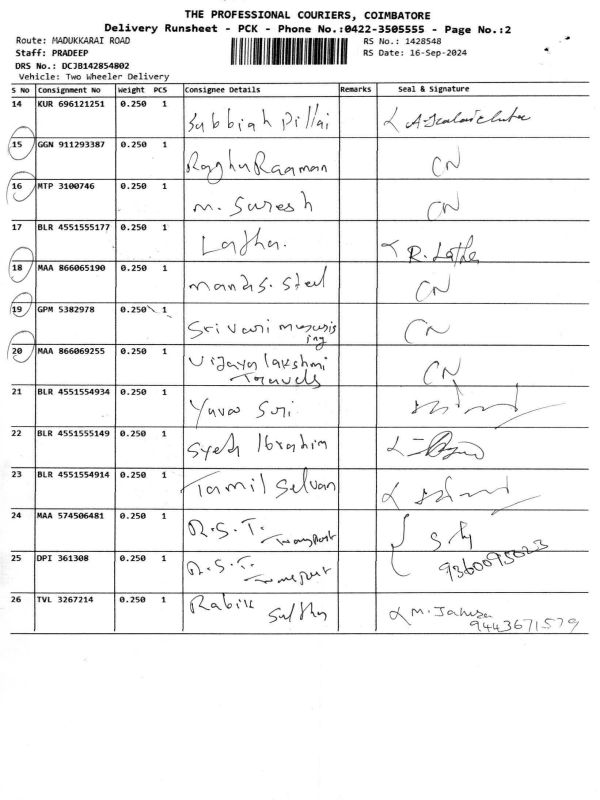 THE PROFESSIONAL COURIERS, COIMBATORE
Delivery Runsheet - PCK - Phone No.:0422-3505555 - Page No.:2
Route: MADUKKARAI ROAD RS No.: 1428548
Staff: PRADEEP RS Date: 16-Sep-2024
DRS No.: DCJB142854802
Vehicle: Two Wheeler Delivery
S No Consignment No Weight PCS Consignee Details Remarks Seal & Signature
14 KUR 696121251 0.250 1 Subbiah Pillai
15 GGN 911293387 0.250 1 Raghu Raaman CN
16 MTP 3100746 0.250 1 M. Suresh CN
17 BLR 4551555177 0.250 1 Latha. R. Latha
18 MAA 866065190 0.250 1 Manas. Steel CN
19 GPM 5382978 0.250 1 Sri Vari CN
20 MAA 866069255 0.250 1 Vijaya lakshmi CN
Travels
21 BLR 4551554934 0.250 1
22 BLR 4551555149 0.250 1 Syed Ibrahim
23 BLR 4551554914 0.250 1 Tamil Selvan
24 MAA 574506481 0.250 1 R.S.T. Transport
25 DPI 361308 0.250 1 R.S.T. Transport 9360095023
26 TVL 3267214 0.250 1
9443671579